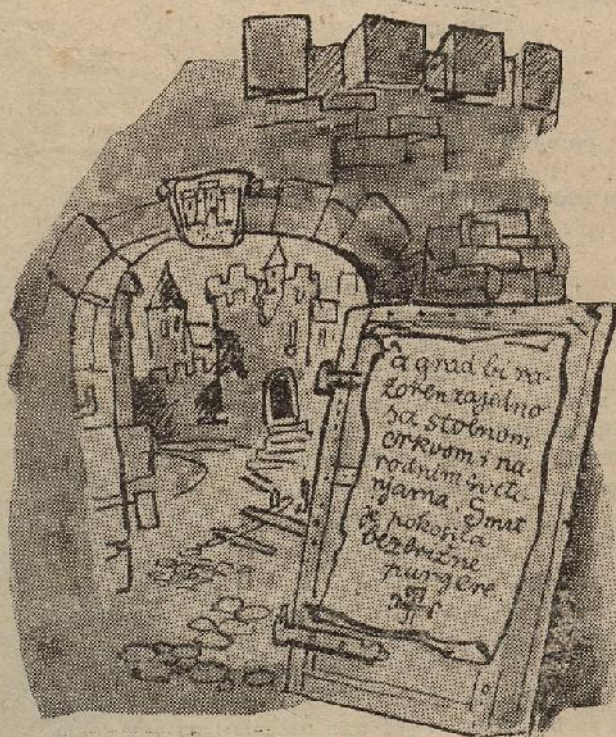 A grad bi ra-
zoren zajedno
sa stolnom
crkvom i na-
rodnim sveti-
njama. Smrt
je pokosila
bezbrižne
purgere.